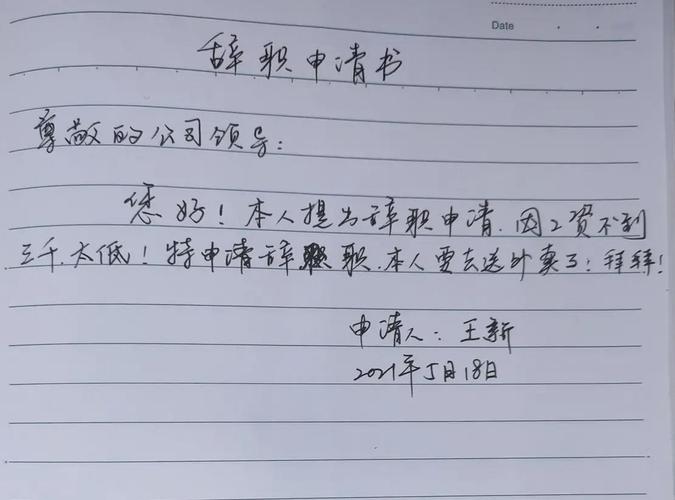 Date
辞职申请书
尊敬的公司领导:
您好！本人提出辞职申请.因工资不到
三千.太低！特申请辞职.本人要去送外卖了！拜拜！
申请人：王新
2021年5月18日